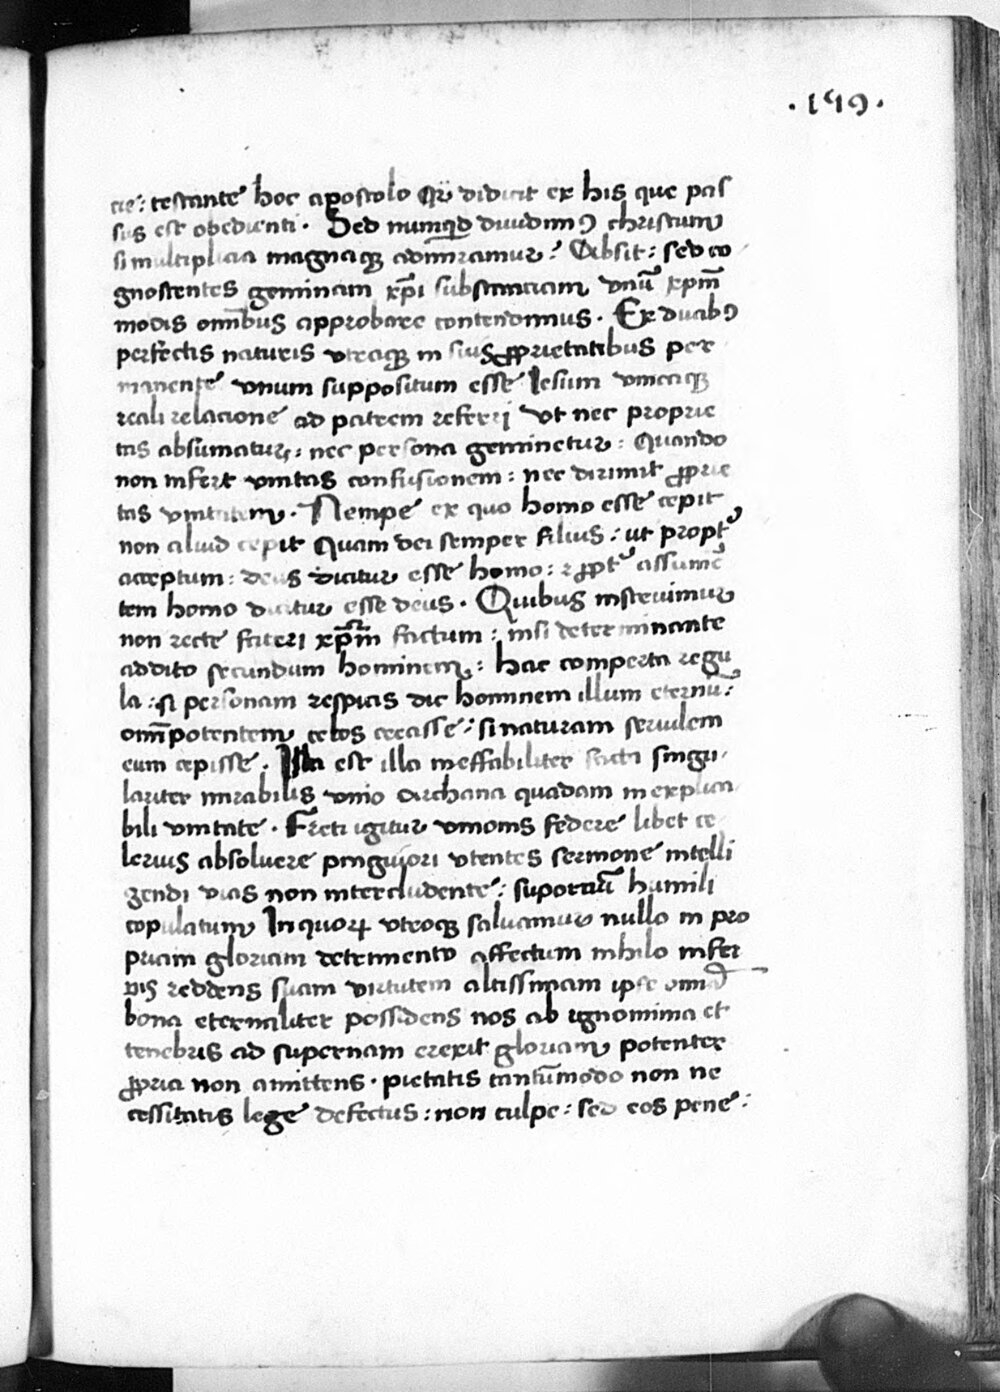 ·159·
cie: testante hoc apostolo qͥ didicit ex his que pas
sus est obedienti· Sed numqͥd diuidimꝰ christum
si multiplicia magnaqꝫ admiramur? Absit: sed co
gnoscentes geminam xp̄i substanciam vnū xp̄m
modis om̄ibus approbare contendimus· Ex duabꝰ
perfectis naturis vtraqꝫ in suis ꝓprietatibus per
manente vnum suppositum esse Iesum vnicaqꝫ
reali relacione ad patrem referri vt nec proprie
tas absumatur: nec persona geminetur: Quando
non infert vnitas confusionem: nec dirimit ꝓprie
tas vnitatem· Nempe ex quo homo esse cepit
non aliud cepit Quam dei semper filius: ut propt᷑
acceptum: deus dicitur esse homo: ⁊ ꝓpt᷑ assumē
tem homo dicitur esse deus· Quibus instruimur
non recte fateri xp̄m factum: nisi determinante
addito secundum hominem: hac comperta regu
la: si personam respicis dic hominem illum eternū:
om̄ipotentem celos creasse: si naturam seruilem
eum cepisse· Ista est illa ineffabiliter facta singu
lariter mirabilis vnio archana quadam inexplica
bili vnitate· Freti igitur vnionis federe libet ce
lerius absoluere pinguiori vtentes sermone intelli
gendi vias non intercludente: suportatū humili
copulatum In quoꝝ vtroqꝫ saluamur nullo in pro
priam gloriam detrimento affectum nihilo infer
nis reddens suam virtutem altissimam ipse omīa
bona eternaliter possidens nos ab ignominia et
tenebris ad supernam erexit gloriam potenter
ꝓpria non amittens· pietatis tantūmodo non ne
cessitatis lege defectus: non culpe: sed eos pene: